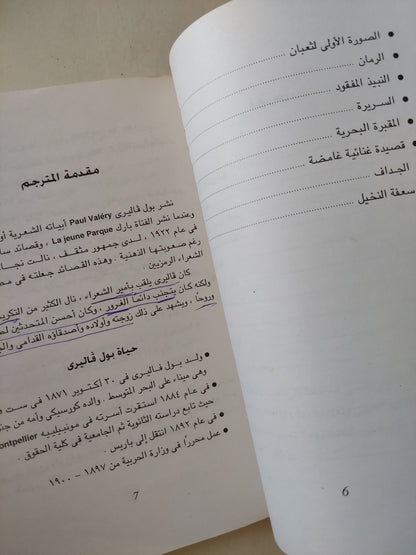 • الصورة الأولى لثعبان
• الرمان
• النبيذ المفقود
• السريرة
• المقبرة البحرية
• قصيدة غنائية غامضة
• الجداف
• سعفة النخيل
6
مقدمة المترجم
نشر بول ڤاليرى Paul Valéry أبياته الشعرية
وعندما نشر الفتاة بارك La jeune Parque ، وقصائد
فى عام ١٩٢٢ ، لدى جمهور مثقف ، نالت
رغم صعوبتها الذهنية . وهذه القصائد جعلته فى
الشعراء الرمزيين .
كان ڤاليرى يلقب بأمير الشعراء ، نال الكثير من التكريم
ولكنه كان يتجنب دائما الغرور ، وكان أحسن المتحدثين
وروحاً ، ويشهد على ذلك زوجته وأولاده وأصدقاؤه القدامى
حياة بول ڤاليرى
• ولد بول ڤاليرى فى ٣٠ أكتوبر ١٨٧١ فى ست
وهى ميناء على البحر المتوسط . والده كورسيكى وأمه من
• فى عام ١٨٨٤ استقرت أسرته فى مونبيلييه
حيث تابع دراسته الثانوية ثم الجامعية فى كلية الحقوق .
• فى عام ١٨٩٢ انتقل إلى باريس .
• عمل محرراً فى وزارة الحربية من ١٨٩٧ – ١٩٠٠
7